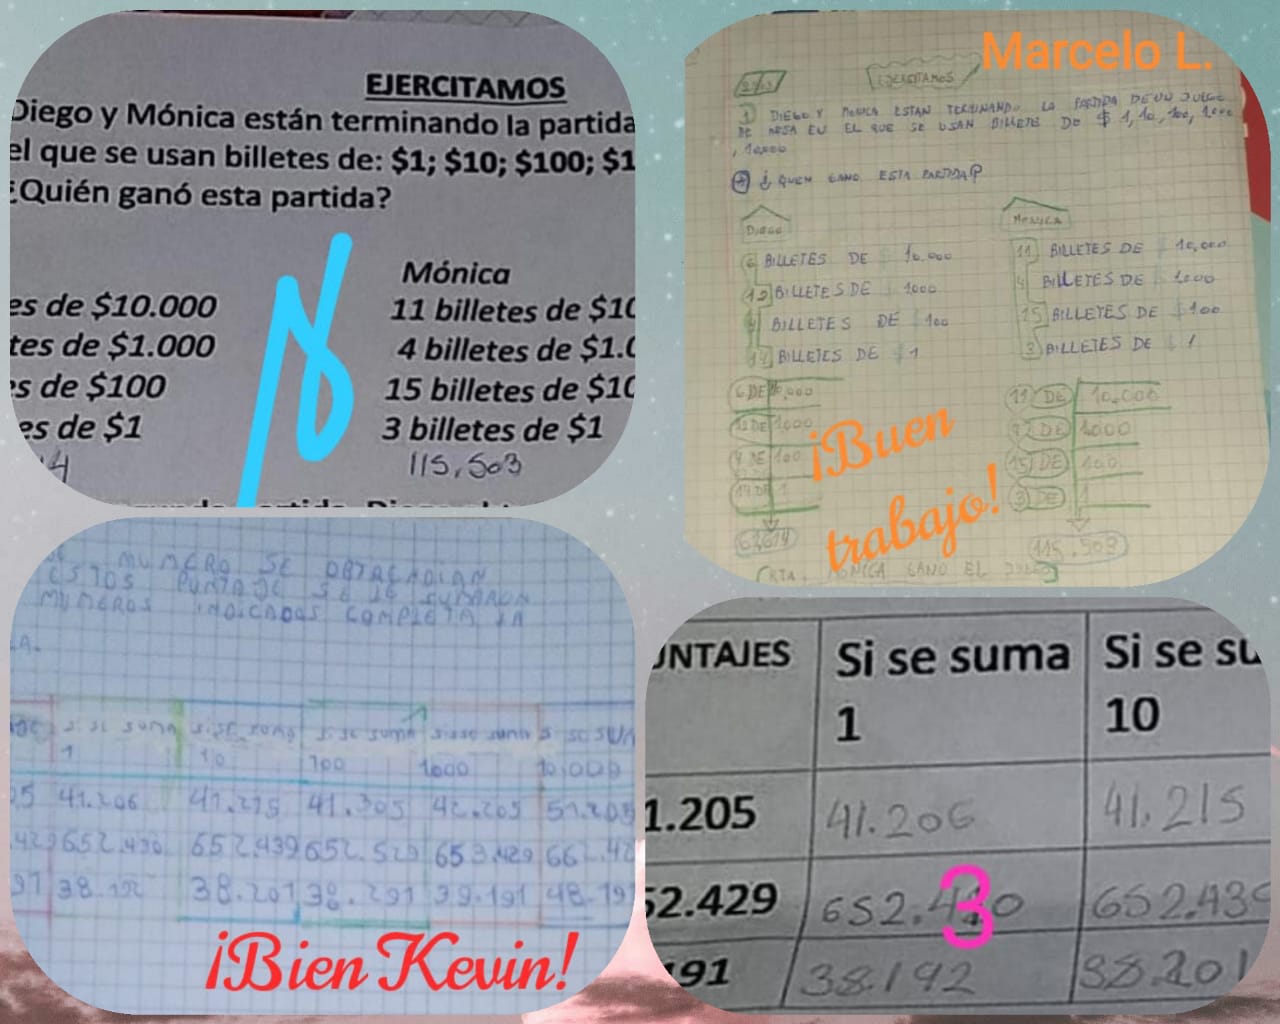 EJERCITAMOS
Diego y Mónica están terminando la partida
el que se usan billetes de: $1; $10; $100; $1
¿Quién ganó esta partida?
Mónica
es de $10.000
11 billetes de $10
tes de $1.000
4 billetes de $1.0
s de $100
15 billetes de $10
es de $1
3 billetes de $1
14
115,503
Marcelo L.
EJERCITAMOS
1) DIEGO Y MONICA ESTAN TERMINANDO LA PARTIDA DE UN JUEGO
DE MESA EN EL QUE SE USAN BILLETE DE $ 1, 10, 100, 1000
, 10000
¿ QUIEN GANO ESTA PARTIDA?
DIEGO
MONICA
6 BILLETES DE 10.000
11 BILLETES DE 10,000
12 BILLETES DE 1000
4 BILLETES DE 1000
BILLETES DE 100
15 BILLETES DE 100
14 BILLETES DE 1
3 BILLETES DE 1
6 DE 10,000
11 DE 10,000
12 DE 1000
DE 1000
DE 100
15 DE 100
14 DE 1
3 DE 1
115,503
RTA. MONICA GANO EL JUEGO
¡Buen
trabajo!
NUMERO SE
ESTOS PUNTAJE SE LE SUMARON
NUMEROS INDICADOS COMPLETA LA
A.
si se suma si se suma si se suma si se suma si se sum
1 10 100 1000 10.000
05 41.206 41.215 41.305 42.205 51.205
429 652.430 652.439 652.529 653.429 662.42
91 38.192 38.201 38.291 39.191 48.191
¡Bien Kevin!
UNTAJES Si se suma Si se su
1 10
1.205 41.206 41.215
52.429 652.430 652.439
191 38.192 38.201
3